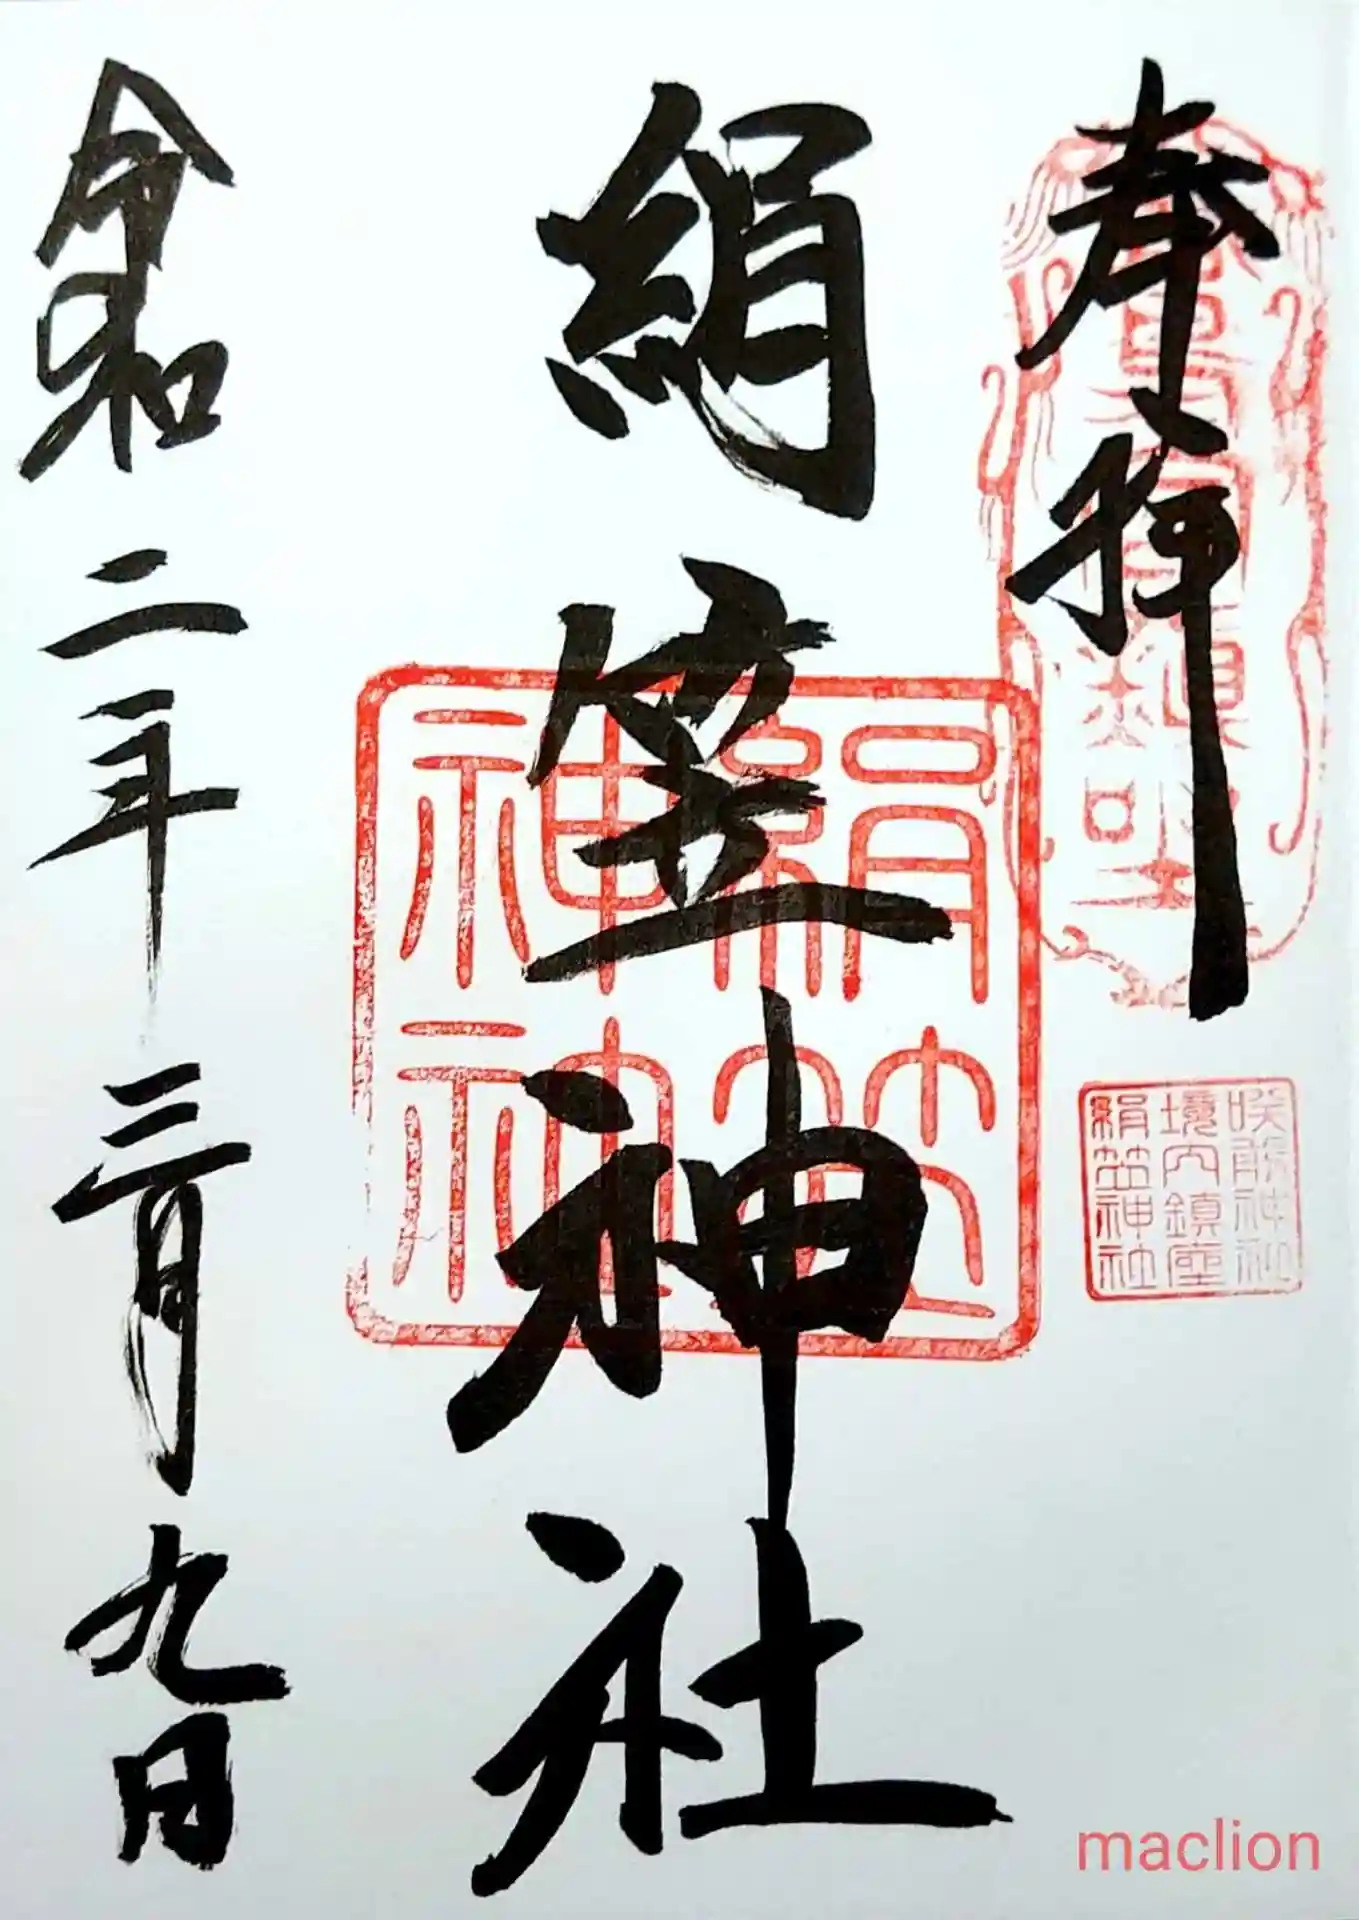 奉拝
咲前神社
境内鎮座
絹笠神社
絹笠神社
絹笠
神社
令和二年三月九日
maclion